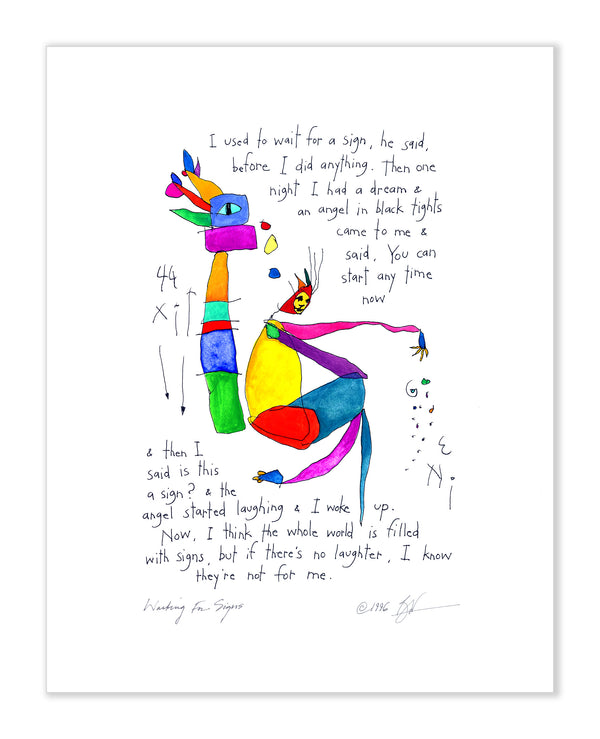 I used to wait for a sign, he said,
before I did anything. Then one
night I had a dream &
an angel in black tights
came to me &
said, You can
start any time
now
44
& then I
said is this
a sign? & the
angel started laughing & I woke up.
Now, I think the whole world is filled
with signs, but if there's no laughter, I know
they're not for me.
Waiting For Signs
©1996